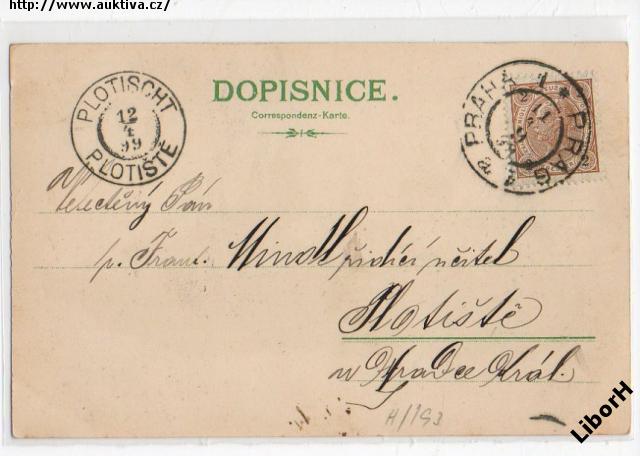 http://www.auktiva.cz/
PLOTISCHT
12
4
99
PLOTIŠTĚ
DOPISNICE.
Correspondenz-Karte.
PRAHA 1 * PRAG
Veletěný Pán
p. Frant. řídící učitel
Plotiště
u Hradce Král.
H/193
LiborH